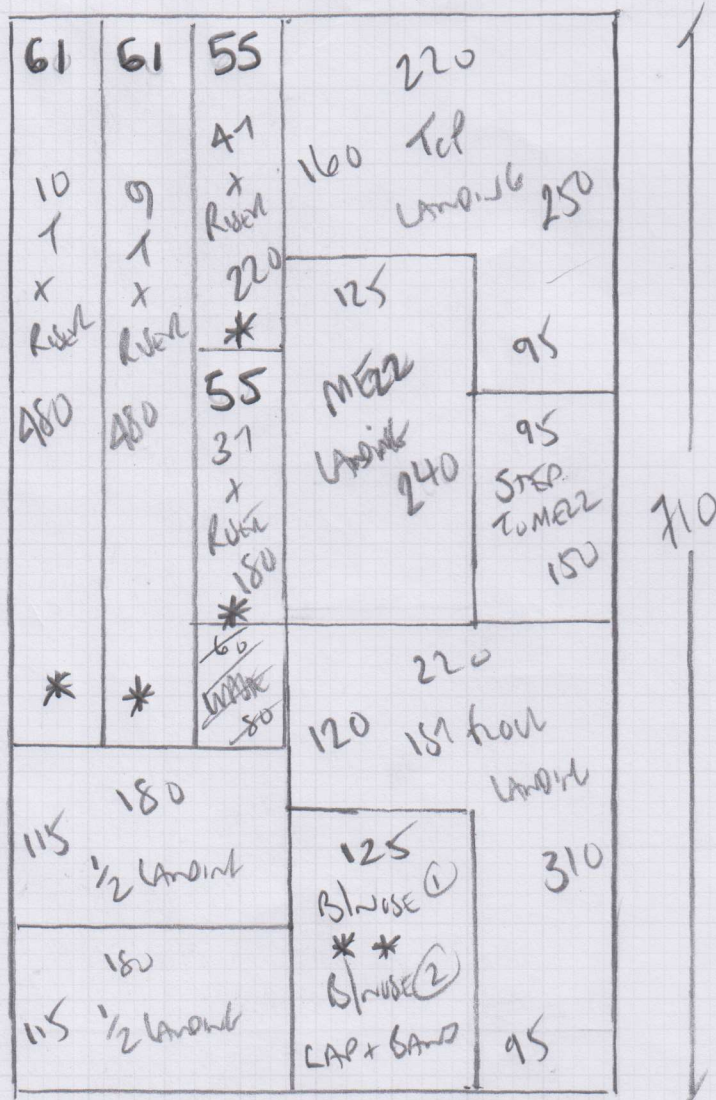 61
10
T
x
RISER
480
*
61
9
T
x
RISER
480
*
55
4T
x
RISER
220
*
55
3T
x
RISER
180
*
60
WASTE
80
220
160 TOP
LANDING 250
95
125
MEZZ
LANDING
240
95
STEP
TO MEZZ
150
710
220
120 1ST FLOOR
LANDING
310
95
180
115
1/2 LANDING
180
115 1/2 LANDING
125
B/NOSE 1
* *
B/NOSE 2
CAP + BAND